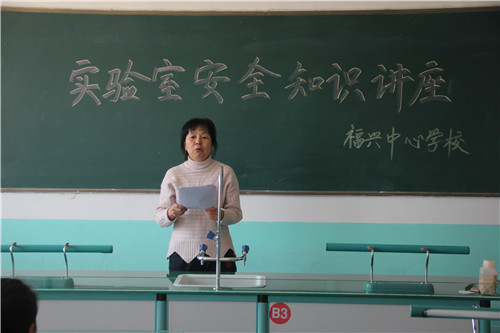 实验室安全知识讲座
福兴中心学校
B3